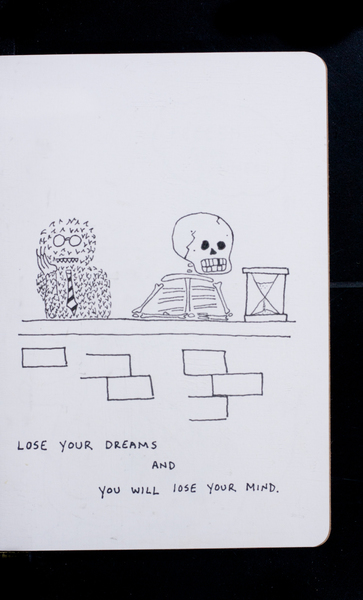 LOSE YOUR DREAMS
AND
YOU WILL LOSE YOUR MIND.